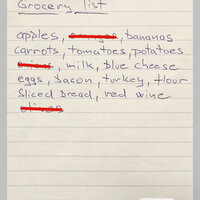 Grocery list
apples, , bananas
carrots, tomatoes, potatoes
, milk, blue cheese
eggs, bacon, turkey, flour
sliced bread, red wine